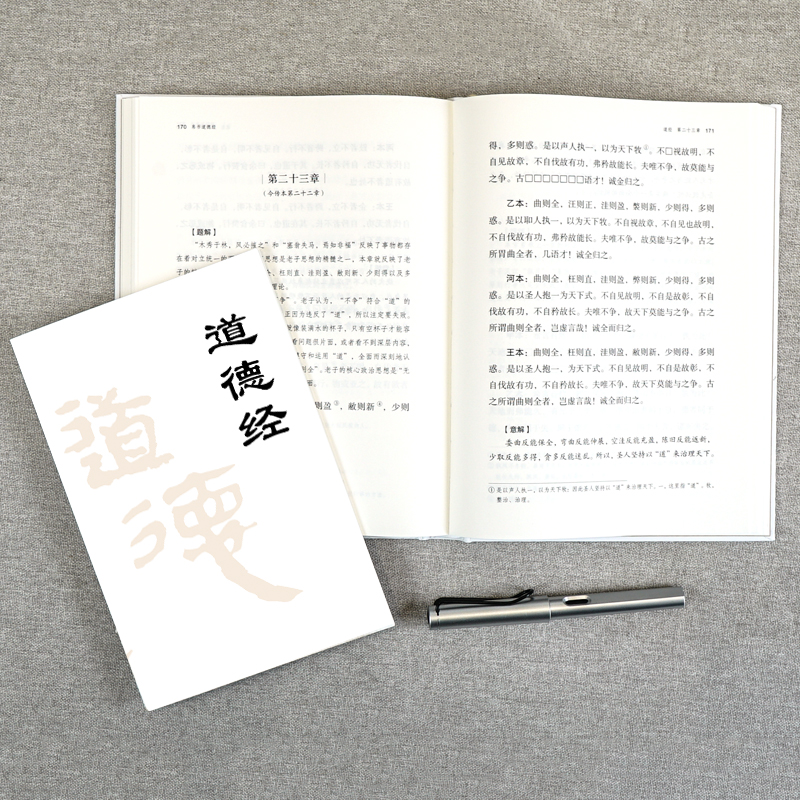 道
德
经
道
德
170
第二十三章
(今传本第二十二章)
【题解】
“木秀于林,风必摧之”和“塞翁失马,焉知非福”反映了事物都存
思想是老子思想的精髓之一,本章就反映了老
、枉则直、洼则盈、敝则新、少则得以及多
理论。
争”。老子认为,“不争”符合“道”的
正因为违反了“道”,所以注定要失败。
就像装满水的杯子,只有空杯子才能容
看问题很片面,或者看不到深层内容,
守和运用“道”,全面而深刻地认
则全”。老子的核心政治思想是“无
则盈③,敝则新④,少则
道经 第二十三章 171
得,多则惑。是以声人执一,以为天下牧①。不□视故明,不
自见故章,不自伐故有功,弗矜故能长。夫唯不争,故莫能与
之争。古□□□□□□□语才!诚金归之。
乙本:曲则全,汪则正,洼则盈,敝则新,少则得,多则
惑。是以耶人执一,以为天下牧。不自视故章,不自见也故明,
不自伐故有功,弗矜故能长。夫唯不争,故莫能与之争。古之
所胃曲全者,几语才!诚全归之。
河本:曲则全,枉则直,洼则盈,弊则新,少则得,多则
惑。是以圣人抱一为天下式。不自见故明,不自是故彰,不自
伐故有功,不自矜故长。夫唯不争,故天下莫能与之争。古之
所谓曲则全者,岂虚言哉!诚全而归之。
王本:曲则全,枉则直,洼则盈,敝则新,少则得,多则
惑。是以圣人抱一,为天下式。不自见故明,不自是故彰,不
自伐故有功,不自矜故长。夫唯不争,故天下莫能与之争。古
之所谓曲则全者,岂虚言哉!诚全而归之。
【意解】
委曲反能保全,弯曲反能伸展,空洼反能充盈,陈旧反能逐新,
少取反能多得,贪多反能迷乱。所以,圣人坚持以“道”来治理天下。
①是以声人执一,以为天下牧:因此圣人坚持以“道”来治理天下。一,这里指“道”。牧,
整治,治理。